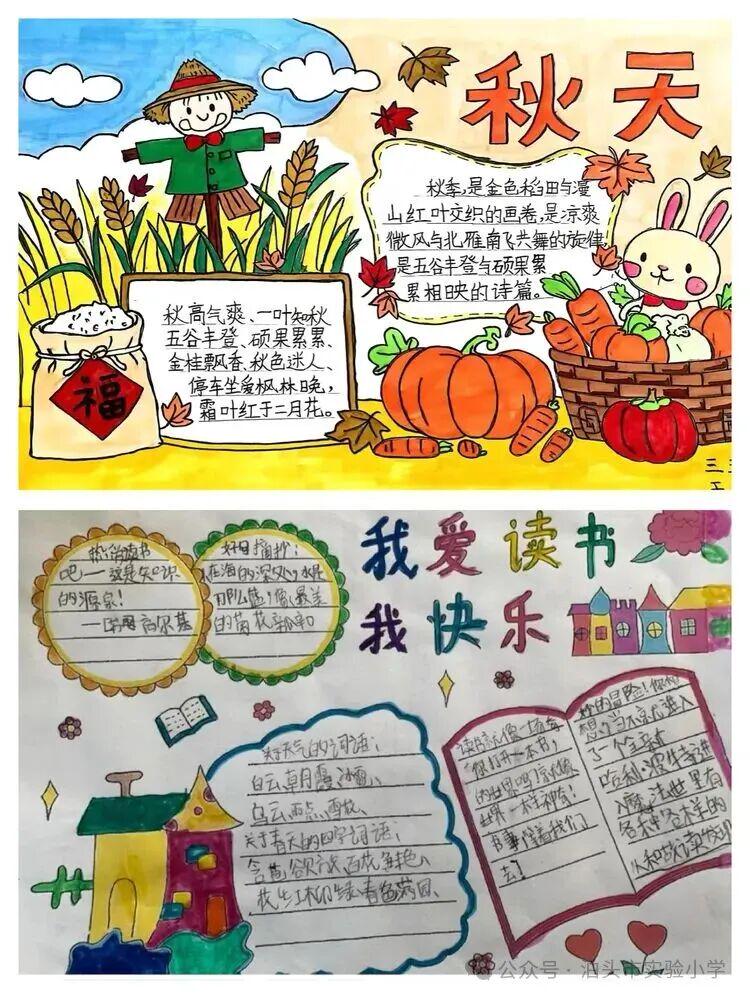 秋天
秋季,是金色稻田与漫
山红叶交织的画卷,是凉爽
微风与北雁南飞共舞的旋律,
是五谷丰登与硕果累
累相映的诗篇。
秋高气爽、一叶知秋
五谷丰登、硕果累累、
金桂飘香、秋色迷人、
停车坐爱枫林晚,
霜叶红于二月花。
福
三
我爱读书
我快乐
读书
吧——这是知识
的源泉!
高尔基
好句摘抄:
在海的深处,水是
那么蓝,像最美
的
关于天气的词语:
白云、朝霞、冰雹、
乌云、雨点、雪花、
关于春天的四字词语:
含苞欲放、百花争艳、
花红柳绿、春色满园、
读书就像一场奇
你打开一本书,
的世界
世界一样神奇!
书事伴着我们
去!
妙的冒险!你想
想,当你进入
了一个
哈利·波特进
入魔法世界有
各种各样的
公众号·泊头市实验小学